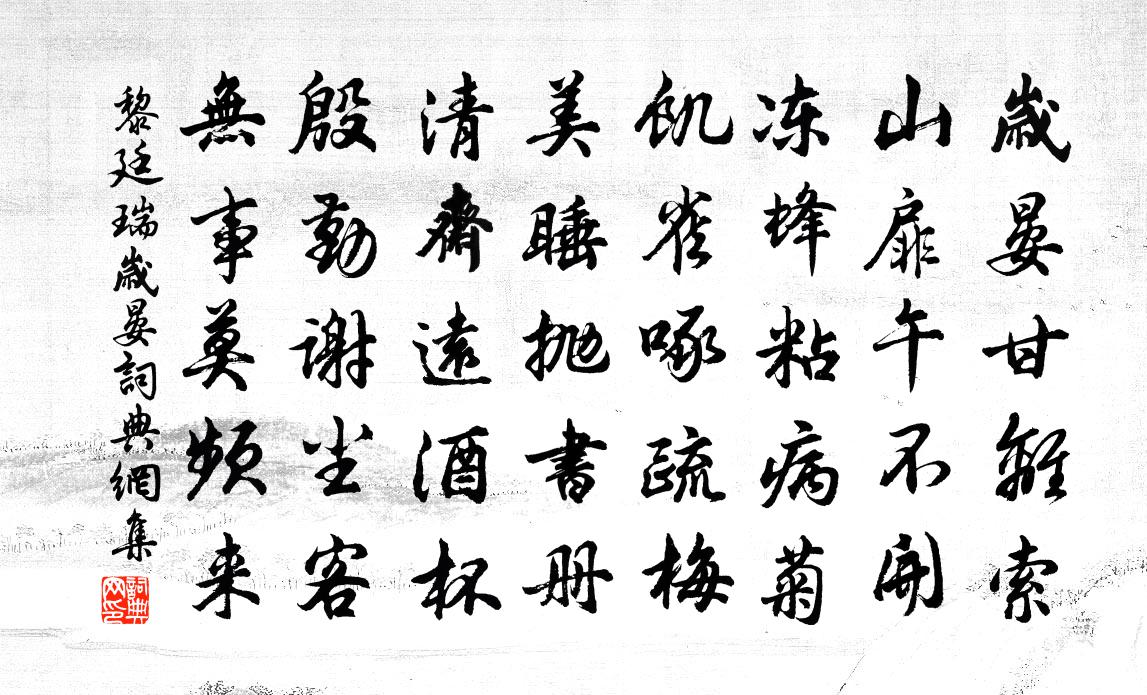 歲晏甘離索
山扉午不開
凍蜂粘病菊
飢雀啄疏梅
美睡抛書册
清齋遠酒杯
殷勤謝尘客
無事莫頻来
黎廷瑞歲晏詞典網集
詞典
网印